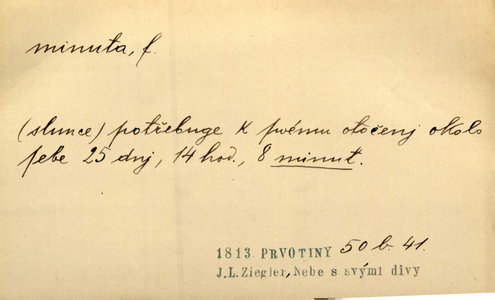 minuta, f.
(slunce) potřebuge k swému otočenj okolo
sebe 25 dnj, 14 hod., 8 minut.
1813. PRVOTINY 50 b. 41.
J.L. Ziegler, Nebe s svými divy